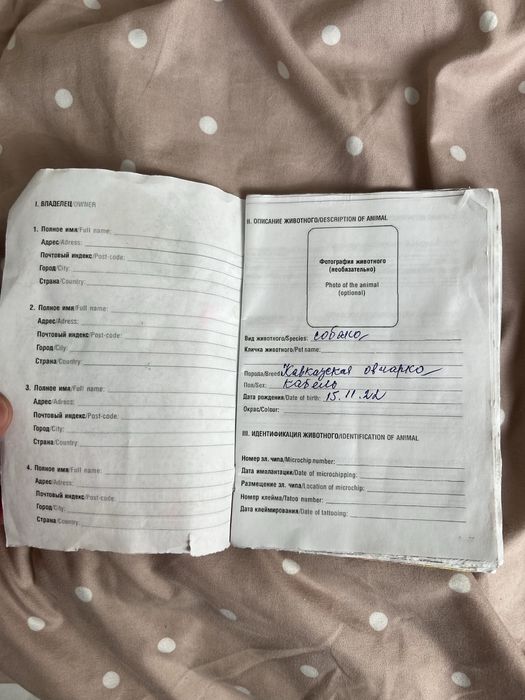 I. ВЛАДЕЛЕЦ/OWNER
1. Полное имя/Full name:
Адрес/Adress:
Почтовый индекс/Post-code:
Город/City:
Страна/Country:
2. Полное имя/Full name:
Адрес/Adress:
Почтовый индекс/Post-code:
Город/City:
Страна/Country:
3. Полное имя/Full name:
Адрес/Adress:
Почтовый индекс/Post-code:
Город/City:
Страна/Country:
4. Полное имя/Full name:
Адрес/Adress:
Почтовый индекс/Post-code:
Город/City:
Страна/Country:
II. ОПИСАНИЕ ЖИВОТНОГО/DESCRIPTION OF ANIMAL
Фотография животного
(необязательно)
Photo of the animal
(optional)
Вид животного/Species: собака
Кличка животного/Pet name:
Порода/Breed: Кавказская овчарка
Пол/Sex: кабель
Дата рождения/Date of birth: 15.11.22
Окрас/Colour:
III. ИДЕНТИФИКАЦИЯ ЖИВОТНОГО/IDENTIFICATION OF ANIMAL
Номер эл. чипа/Microchip number:
Дата имплантации/Date of microchipping:
Размещение эл. чипа/Location of microchip:
Номер клейма/Tatoo number:
Дата клеймирования/Date of tattooing: